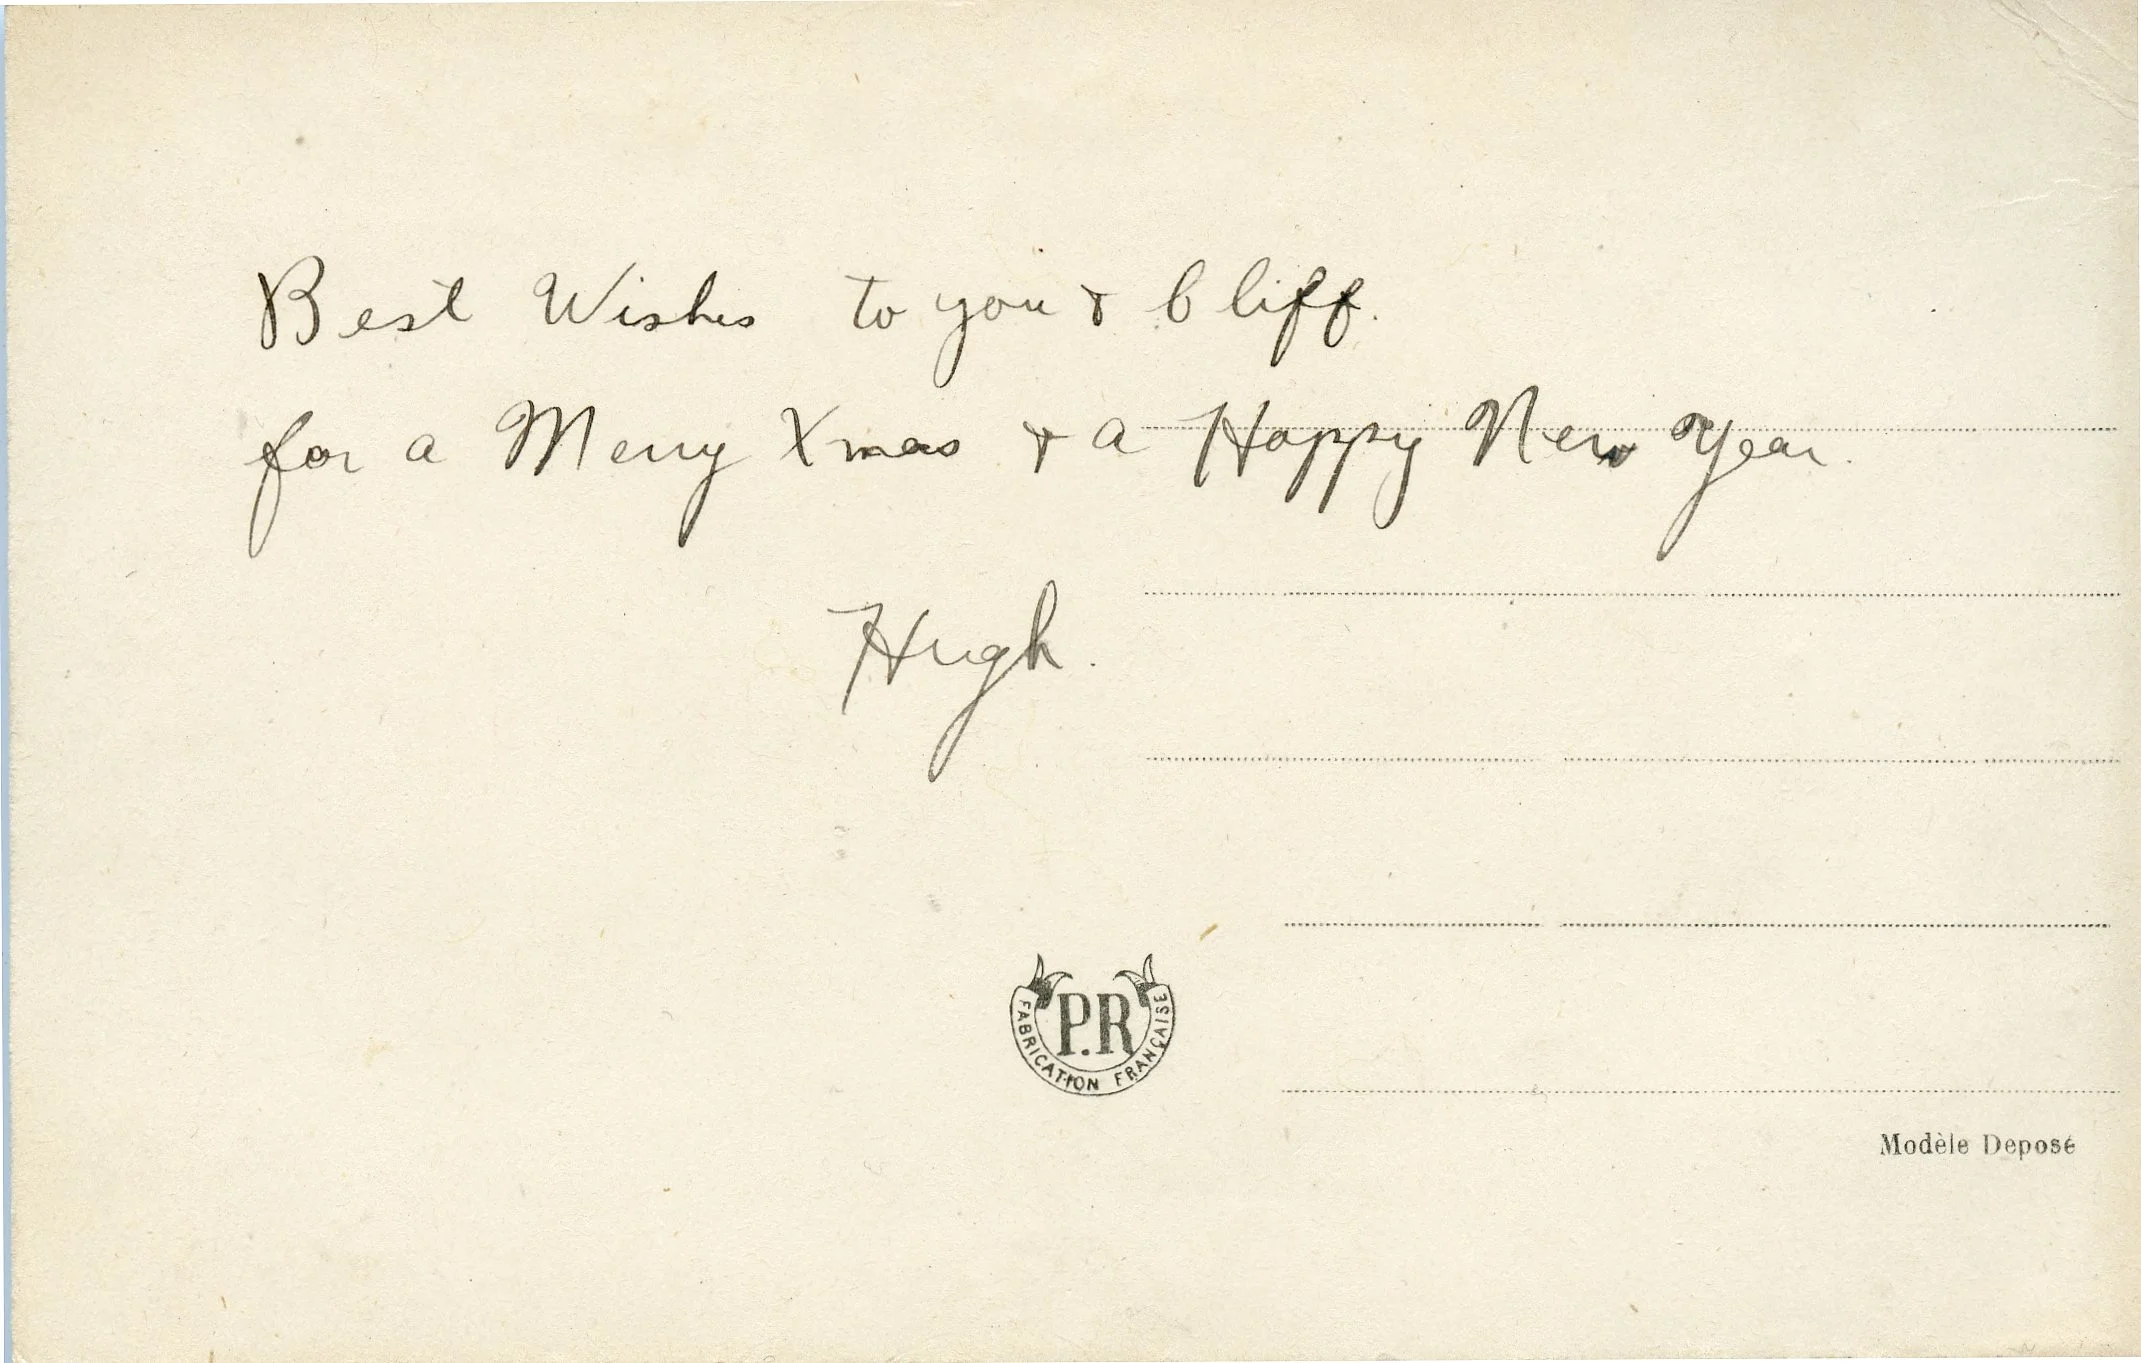 Best Wishes to you & Cliff.
for a Merry Xmas & a Happy New Year.
Hugh.
P.R
FABRICATION FRANÇAISE
Modèle Deposé